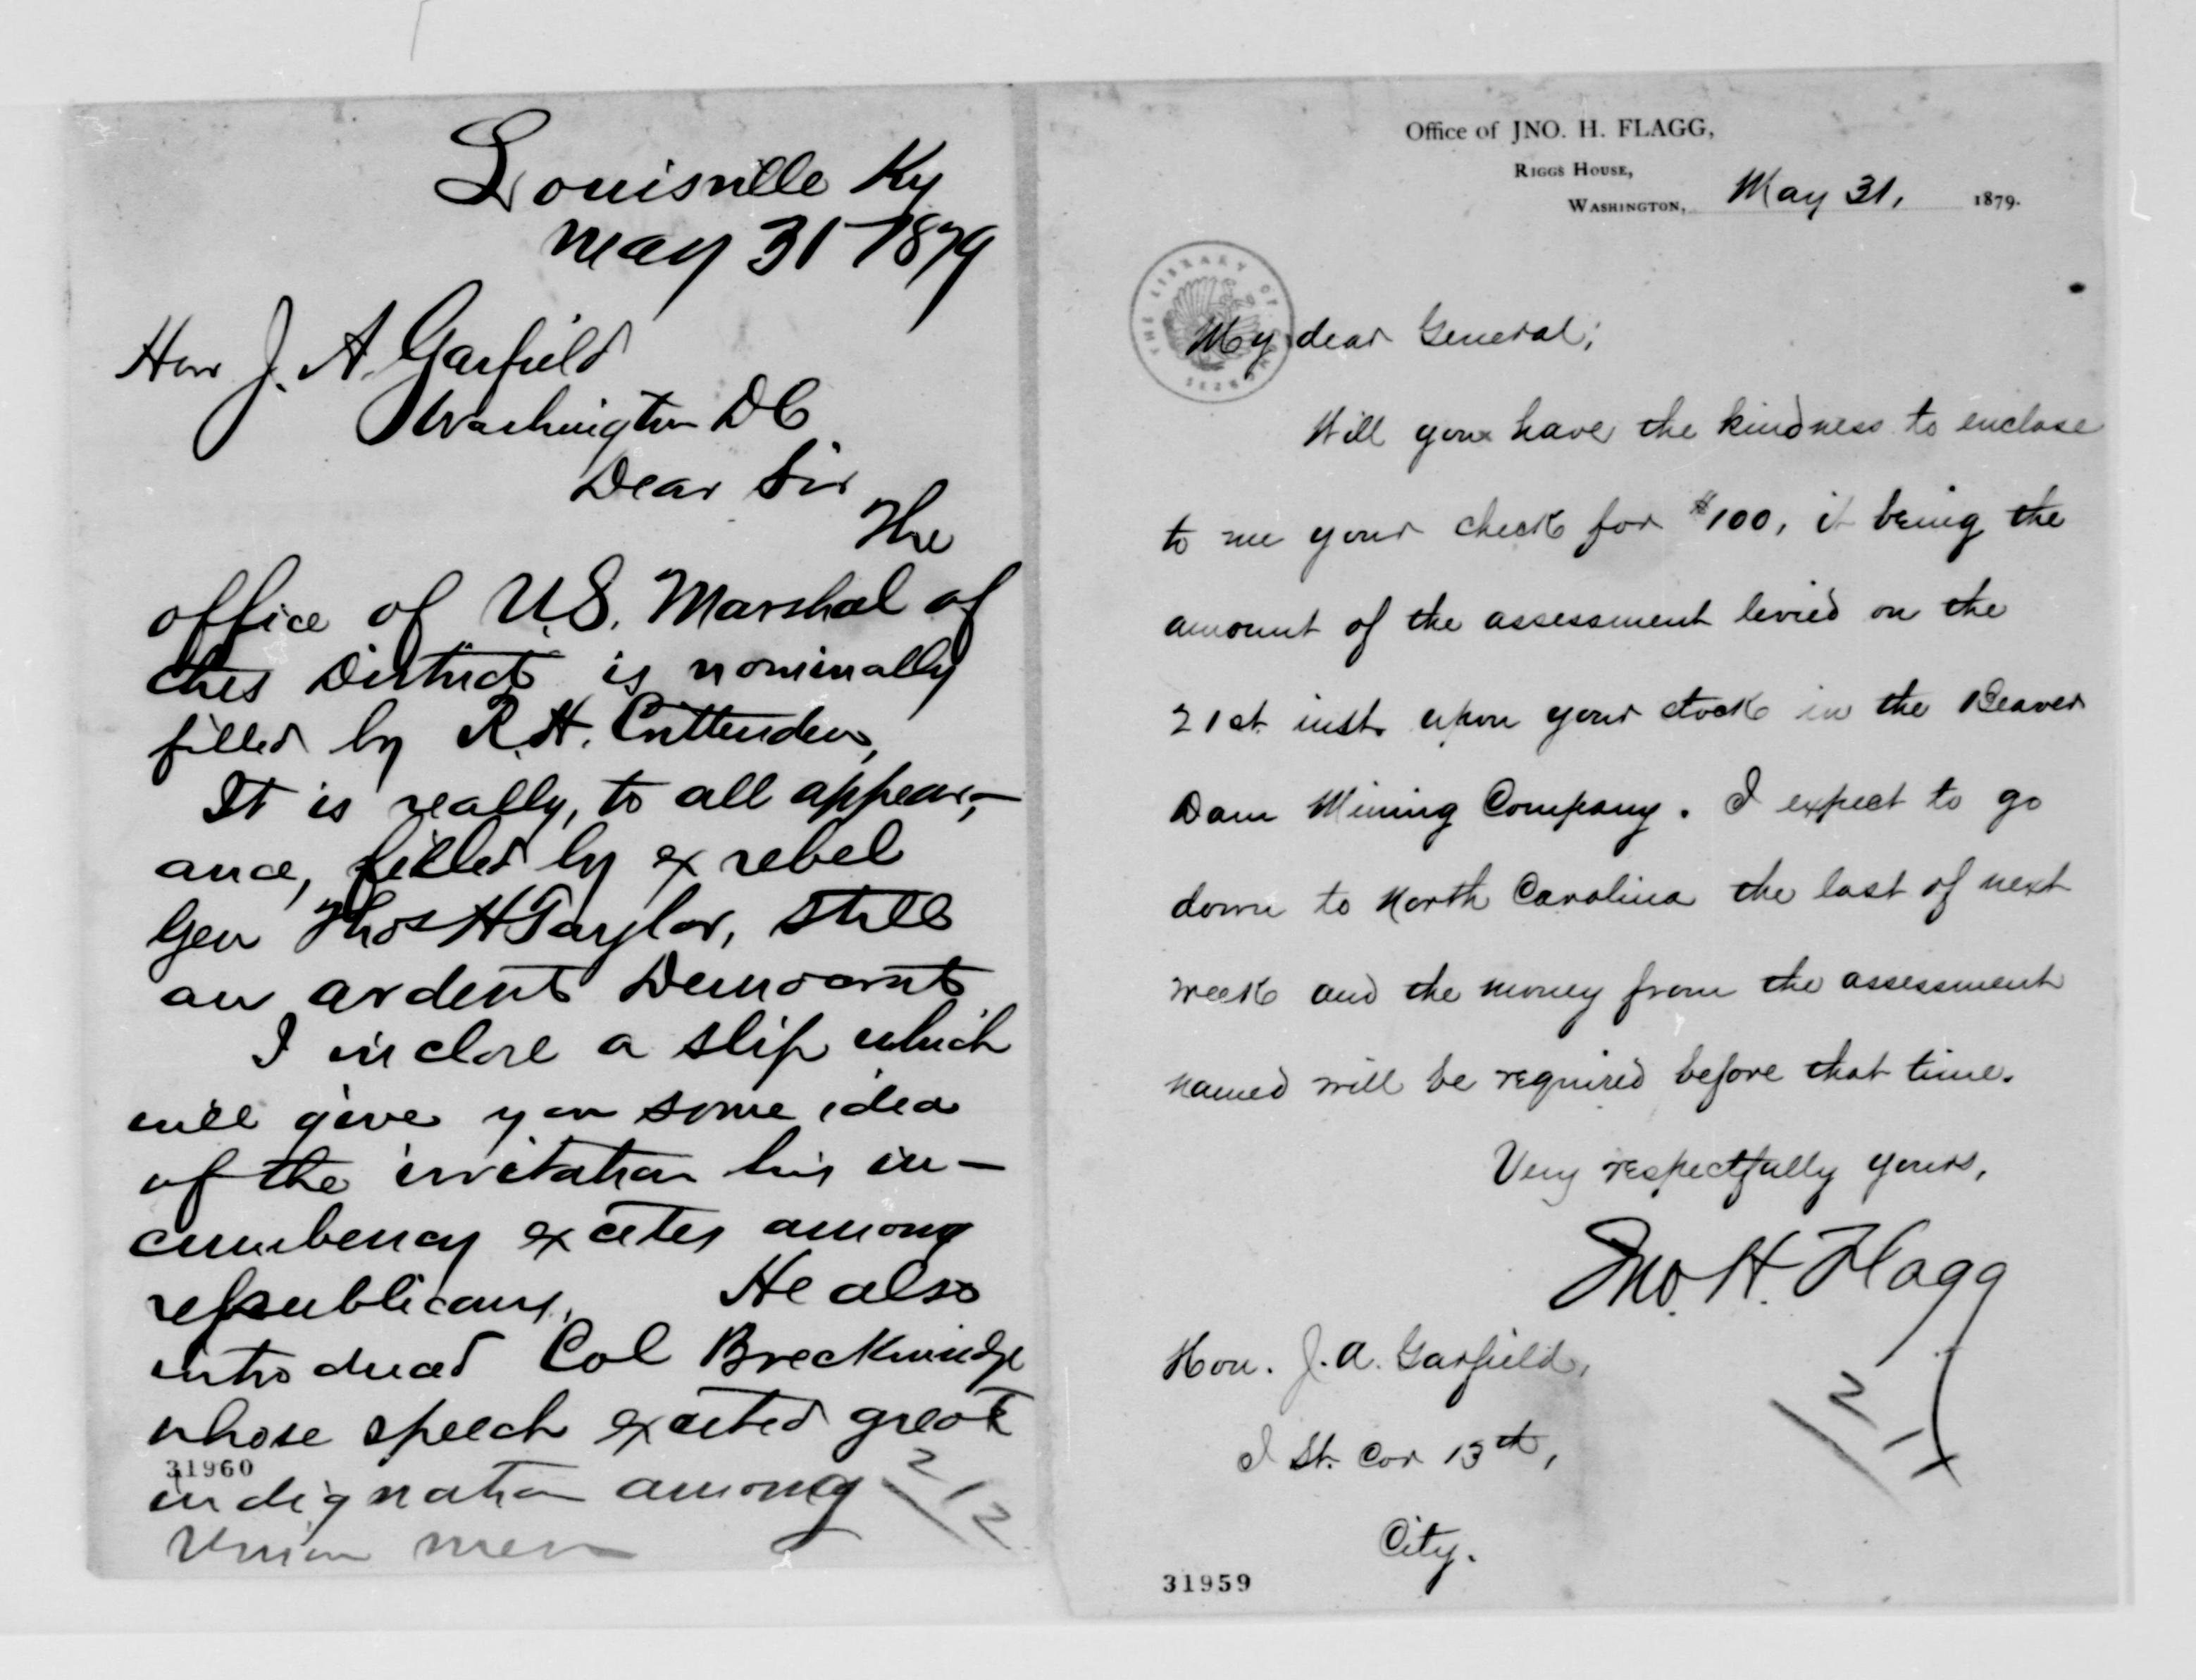 Louisville Ky
May 31 1879
Hon J. A. Garfield
Washington DC
Dear Sir
The
office of U.S. Marshal of
this District is nominally
filled by R. H. Crittenden,
It is really, to all appear-
ance, filled by ex rebel
Gen Thos H Taylor, still
an ardent Democrat
I inclose a slip which
will give you some idea
of the irritation his in-
cumbency excites among
republicans. He also
introduced Col Breckinridge
whose speech excited great
31960
indignation among
Union men
2/12
Office of JNO. H. FLAGG,
RIGGS HOUSE,
WASHINGTON, May 31, 1879.
THE LIBRARY OF CONGRESS
My dear General;
Will you have the kindness to enclose
to me your check for $100, it being the
amount of the assessment levied on the
21st inst. upon your stock in the Beaver
Dam Mining Company. I expect to go
down to North Carolina the last of next
week and the money from the assessment
named will be required before that time.
Very respectfully yours,
Jno. H. Flagg
Hon. J. A. Garfield,
I St. Cor 13th,
City.
31959